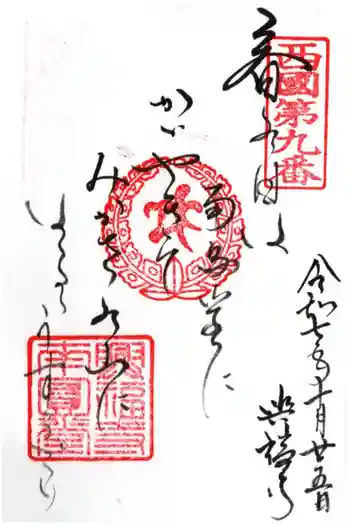 西國第九番
春乃日は
南圓堂に
かゞやきて
みかさの山に
はるゝ
令和七年十月廿五日
興福寺
興福寺
南圓堂